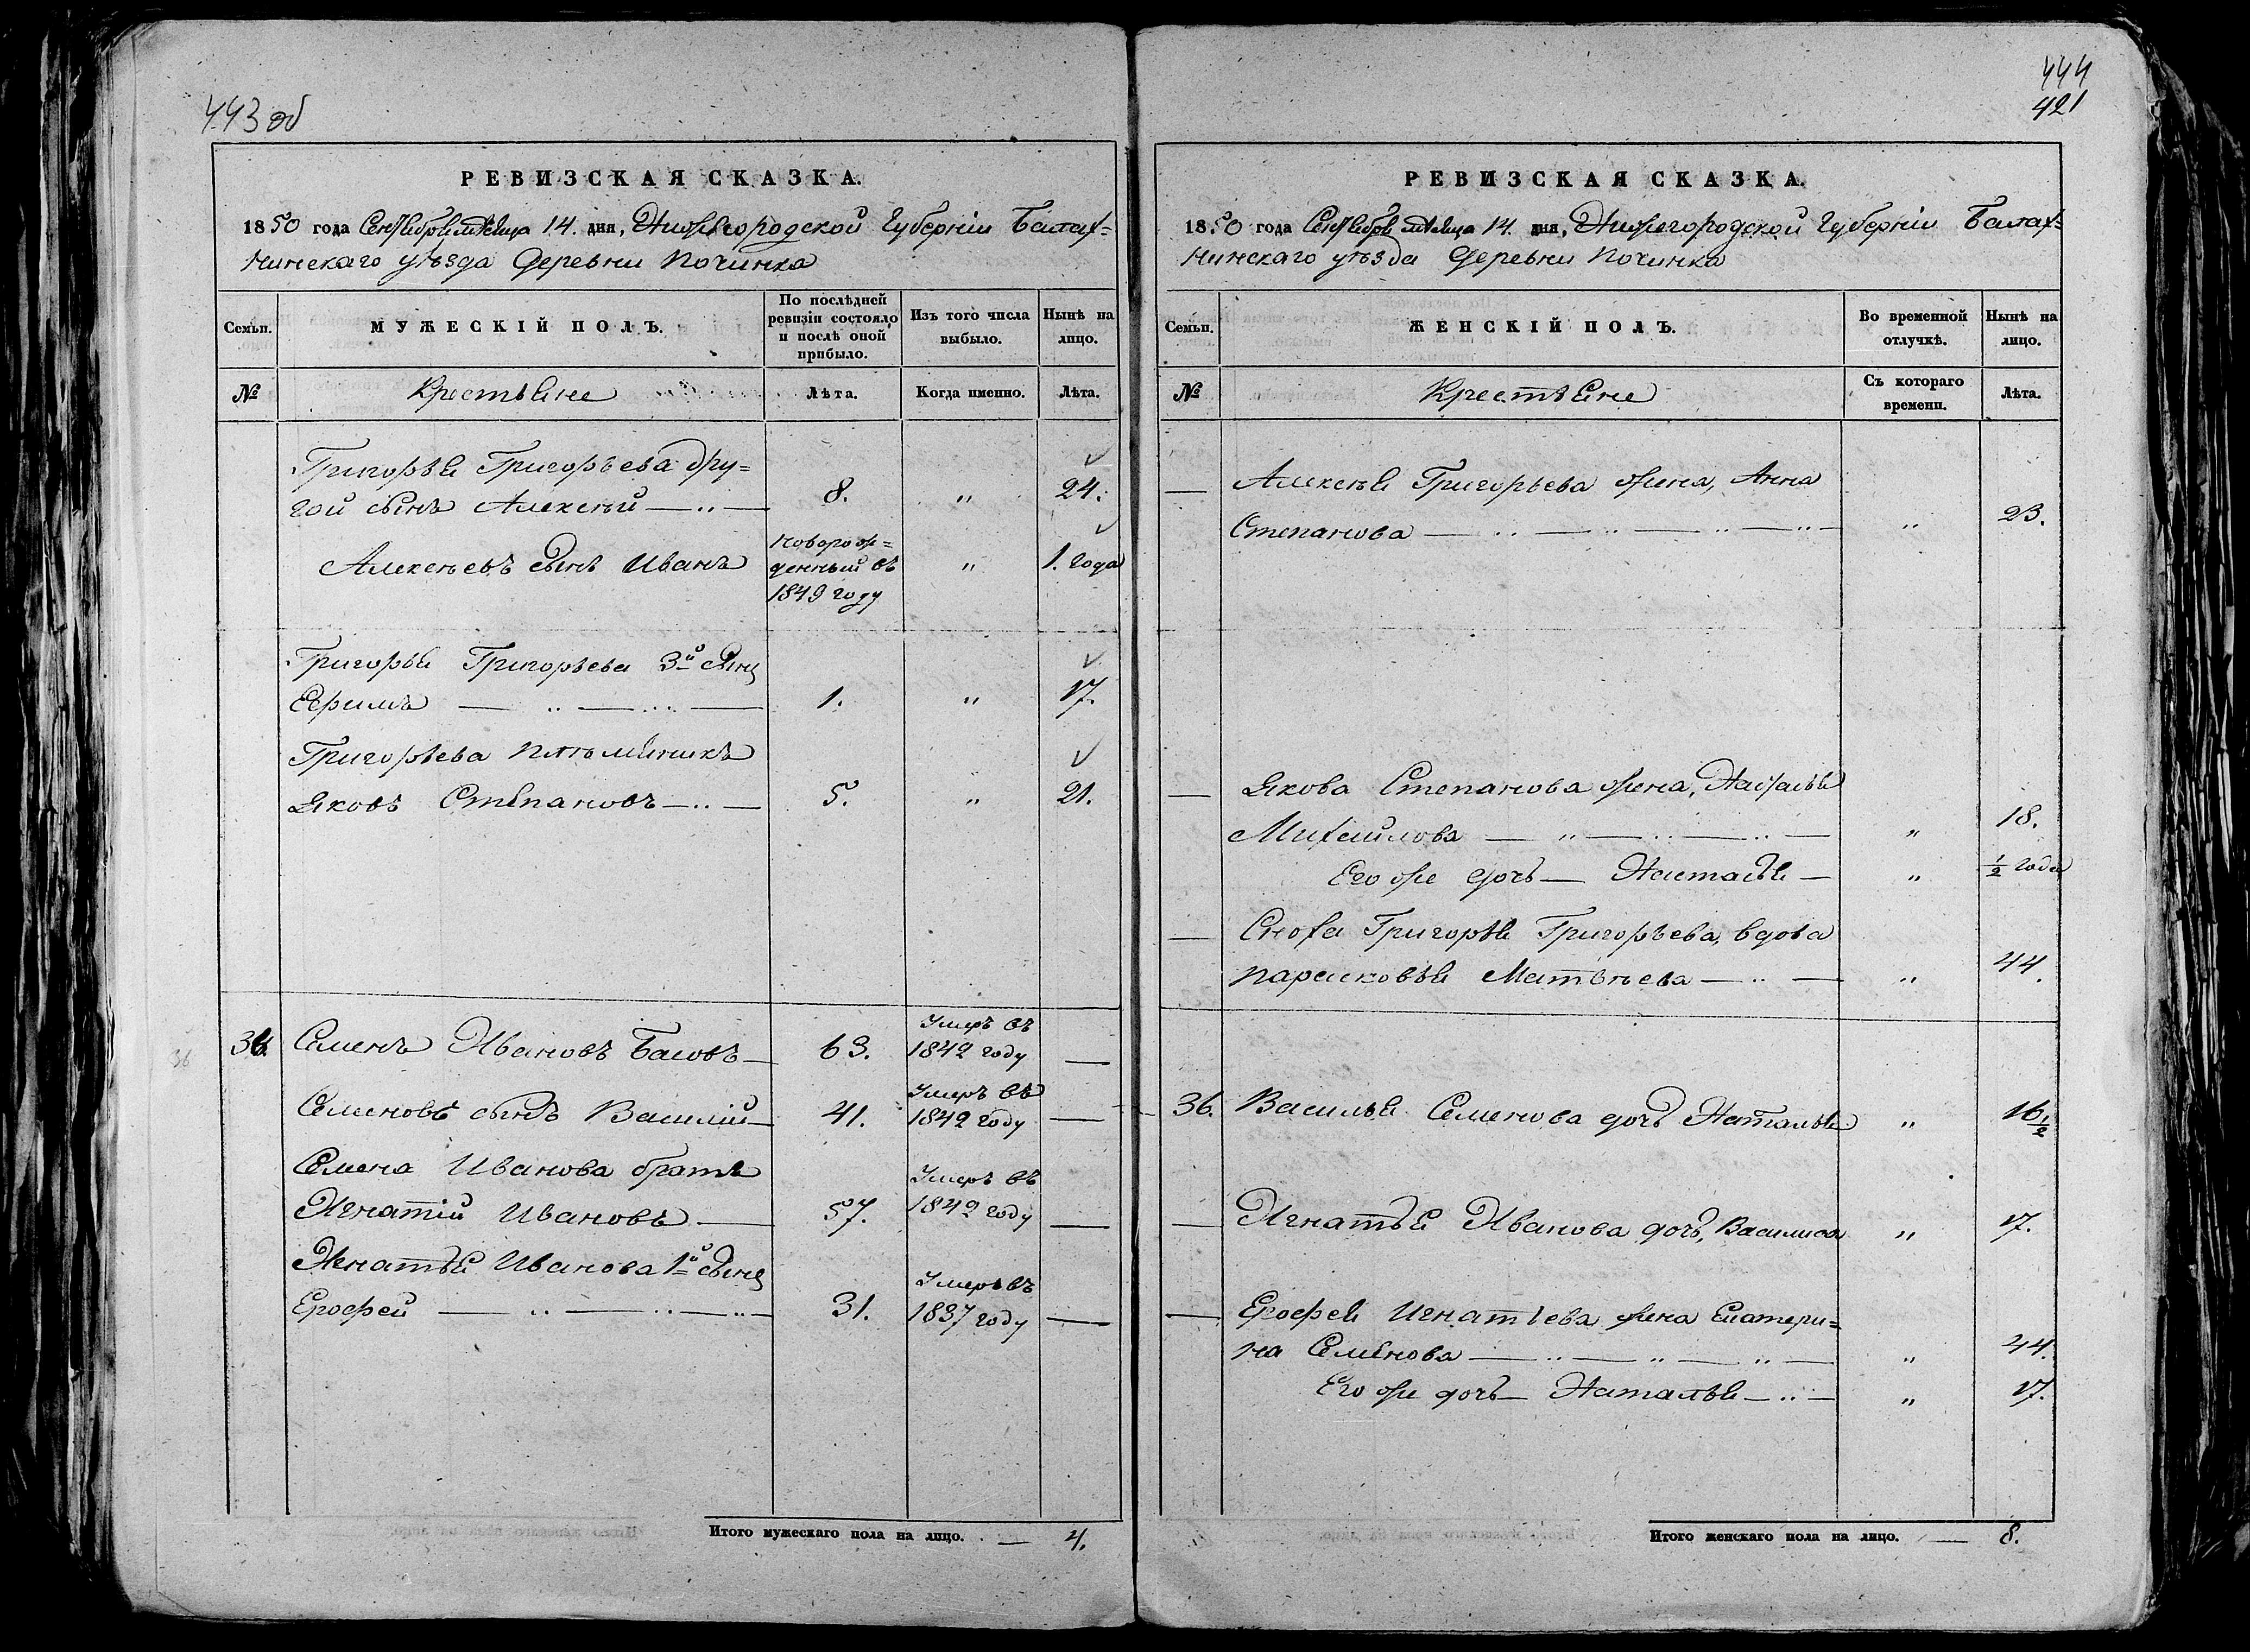 443 об
РЕВИЗСКАЯ СКАЗКА.
1850 года Сентября месяца 14. дня, Нижегородской Губернии Балах=
нинскаго уѣзда Деревни Починка
Семьи.
МУЖЕСКІЙ ПОЛЪ.
По послѣдней
ревизіи состояло
и послѣ оной
прибыло.
Изъ того числа
выбыло.
Нынѣ на
лицо.
№
Крестьяне
Лѣта.
Когда именно.
Лѣта.
Григорья Григорьева дру=
гой сынъ Алексѣй — „ — 8. „ 24.
Алексѣевъ сынъ Иванъ
новорож=
денный въ
1849 году
„ 1. года
Григорья Григорьева 3й сынъ
Ефимъ 1. „ 17.
Григорьева племянникъ
Яковъ Степановъ 5. „ 21.
36
36. Семенъ Ивановъ Басовъ 63.
Умеръ въ
1842 году —
Семеновъ сынъ Василій 41.
Умеръ въ
1842 году —
Семена Иванова братъ
Игнатій Ивановъ 57.
Умеръ въ
1842 году —
Игнатья Иванова 1й сынъ
Ерофей 31.
Умеръ въ
1837 году —
Итого мужескаго пола на лицо. — 4.
444
421
РЕВИЗСКАЯ СКАЗКА.
1850 года Сентября месяца 14. дня, Нижегородской Губерніи Балах=
нинскаго уѣзда Деревни Починка
Семьи.
ЖЕНСКІЙ ПОЛЪ.
Во временной
отлучкѣ.
Нынѣ на
лицо.
№
Крестьяне
Съ котораго
времени.
Лѣта.
— Алексѣя Григорьева жена, Анна
Степанова „ 23.
— Якова Степанова жена, Наталья
Михайлова „ 18.
Его же дочь — Наталья — „ ½ года
— Сноха Григорья Григорьева, вдова
Парасковья Матвѣева „ 44.
36. Василья Семенова дочь Наталья „ 16½
— Игнатья Иванова дочь, Василиса „ 17.
— Ерофея Игнатьева жена Екатери=
на Семенова „ 44.
Его же дочь — Наталья „ 17.
Итого женскаго пола на лицо. — 8.